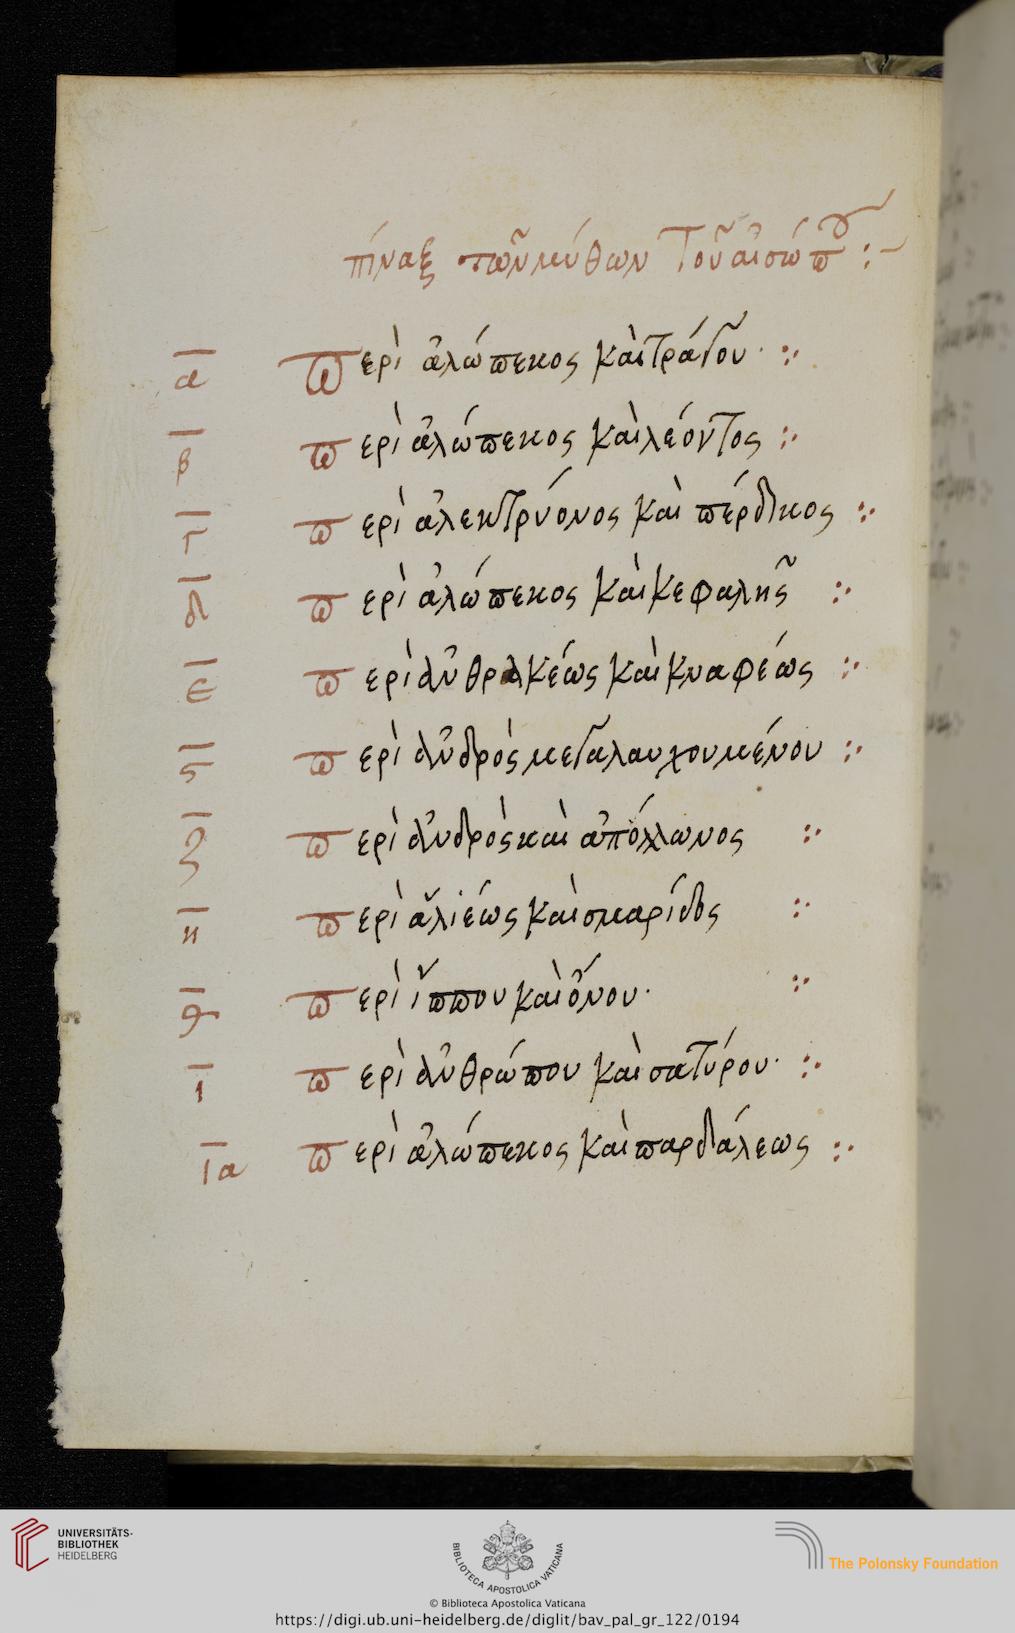 πίναξ τῶν μύθων τοῦ αἰσώπου :-
α περὶ ἀλώπεκος καὶ τράγου· :·
β περὶ ἀλώπεκος καὶ λέοντος :·
γ περὶ ἀλεκτρύονος καὶ πέρδικος :·
δ περὶ ἀλώπεκος καὶ κεφαλῆς :·
ε περὶ ἀνθρακέως καὶ κναφέως :·
ς περὶ ἀνδρὸς μεγαλαυχουμένου :·
ζ περὶ ἀνδρὸς καὶ ἀπόλλωνος :·
η περὶ ἁλιέως καὶ σμαρίδος :·
θ περὶ ἵππου καὶ ὄνου· :·
ι περὶ ἀνθρώπου καὶ σατύρου· :·
ια περὶ ἀλώπεκος καὶ παρδάλεως :·
UNIVERSITÄTS-
BIBLIOTHEK
HEIDELBERG
BIBLIOTECA APOSTOLICA VATICANA
The Polonsky Foundation
© Biblioteca Apostolica Vaticana
https://digi.ub.uni-heidelberg.de/diglit/bav_pal_gr_122/0194